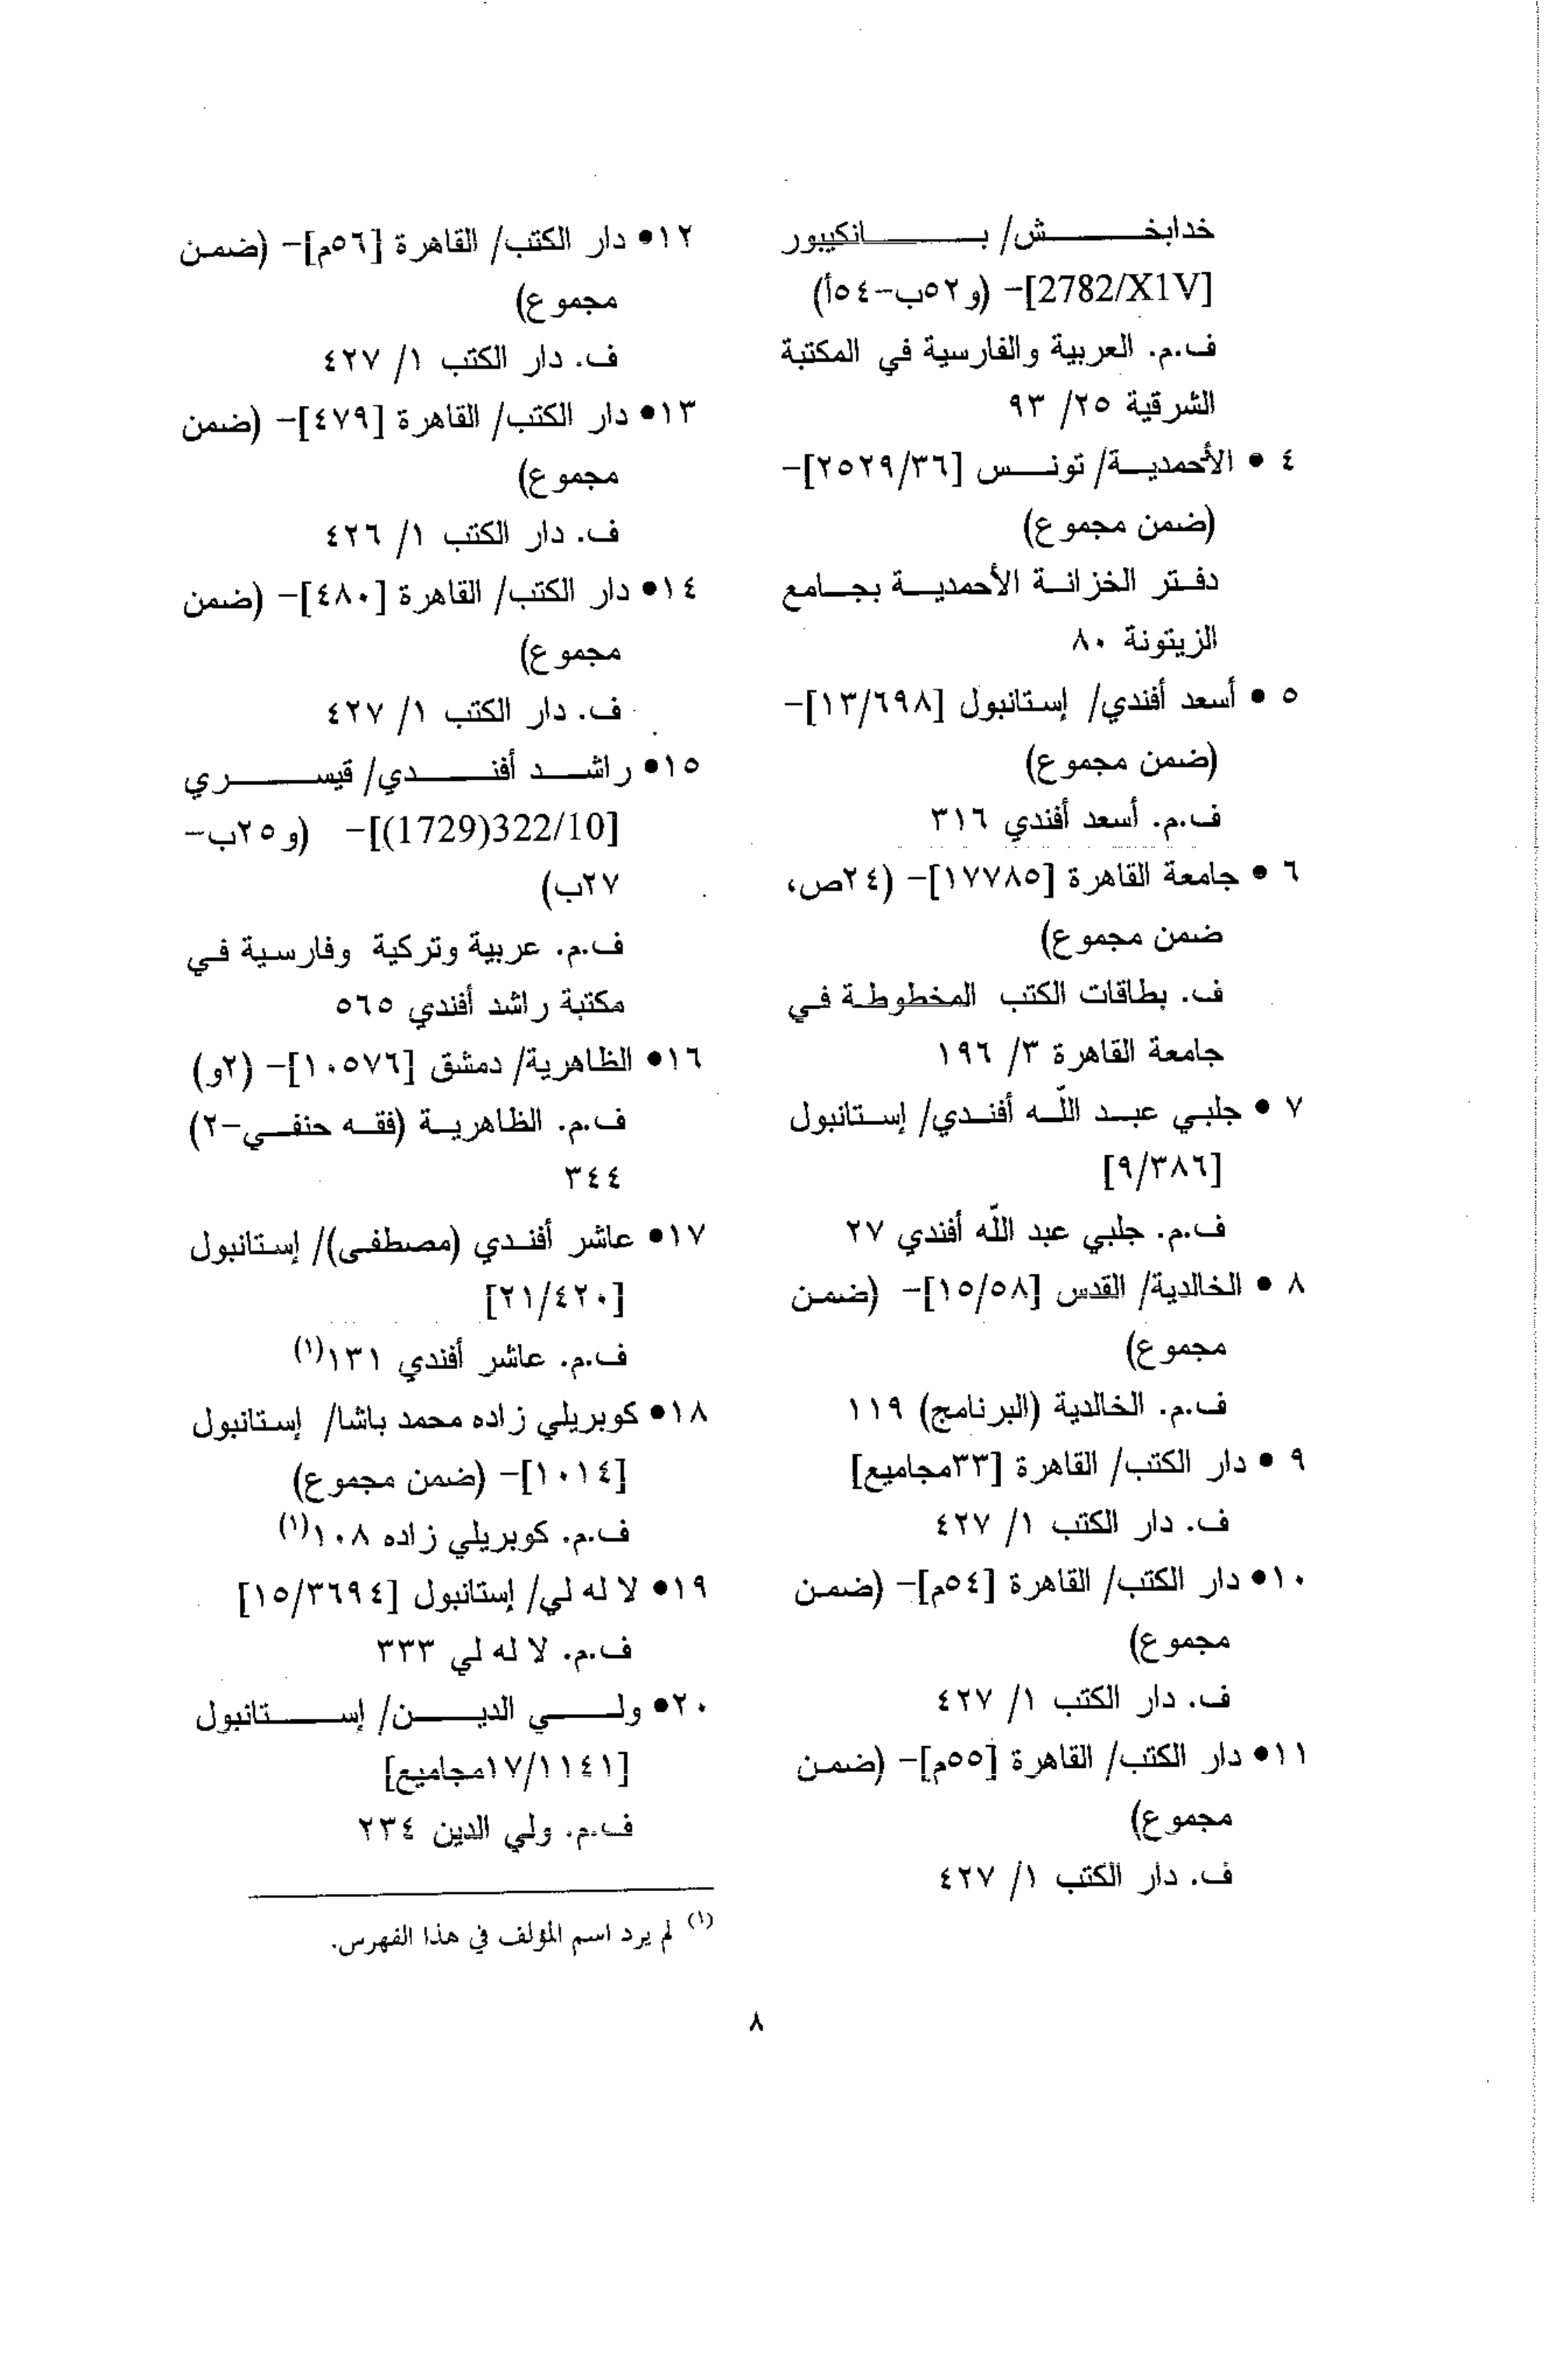 خدابخش/ بانكيپور
[2782/X1V]- (و٥٢ب-٥٤أ)
ف.م. العربية والفارسية في المكتبة
الشرقية ٢٥/ ٩٣
٤ • الأحمدية/ تونس [٢٥٢٩/٣٦]-
(ضمن مجموع)
دفتر الخزانة الأحمدية بجامع
الزيتونة ٨٠
٥ • أسعد أفندي/ إستانبول [١٣/٦٩٨]-
(ضمن مجموع)
ف.م. أسعد أفندي ٣١٦
٦ • جامعة القاهرة [١٧٧٨٥]- (٢٤ص،
ضمن مجموع)
ف. بطاقات الكتب المخطوطة في
جامعة القاهرة ٣/ ١٩٦
٧ • جلبي عبد اللّه أفندي/ إستانبول
[٩/٣٨٦]
ف.م. جلبي عبد اللّه أفندي ٢٧
٨ • الخالدية/ القدس [١٥/٥٨]- (ضمن
مجموع)
ف.م. الخالدية (البرنامج) ١١٩
٩ • دار الكتب/ القاهرة [٣٣مجاميع]
ف. دار الكتب ١/ ٤٢٧
١٠• دار الكتب/ القاهرة [٥٤م]- (ضمن
مجموع)
ف. دار الكتب ١/ ٤٢٧
١١• دار الكتب/ القاهرة [٥٥م]- (ضمن
مجموع)
ف. دار الكتب ١/ ٤٢٧
١٢• دار الكتب/ القاهرة [٥٦م]- (ضمن
مجموع)
ف. دار الكتب ١/ ٤٢٧
١٣• دار الكتب/ القاهرة [٤٧٩]- (ضمن
مجموع)
ف. دار الكتب ١/ ٤٢٦
١٤• دار الكتب/ القاهرة [٤٨٠]- (ضمن
مجموع)
ف. دار الكتب ١/ ٤٢٧
١٥• راشد أفندي/ قيسري
[322/10(1729)]- (و٢٥ب-
٢٧ب)
ف.م. عربية وتركية وفارسية في
مكتبة راشد أفندي ٥٦٥
١٦• الظاهرية/ دمشق [١٠٥٧٦]- (٢و)
ف.م. الظاهرية (فقه حنفي-٢)
٣٤٤
١٧• عاشر أفندي (مصطفى)/ إستانبول
[٢١/٤٢٠]
ف.م. عاشر أفندي ١٣١(١)
١٨• كوبريلي زاده محمد باشا/ إستانبول
[١٠١٤]- (ضمن مجموع)
ف.م. كوبريلي زاده ١٠٨(١)
١٩• لا له لي/ إستانبول [١٥/٣٦٩٤]
ف.م. لا له لي ٣٣٣
٢٠• ولي الدين/ إستانبول
[١٧/١١٤١مجاميع]
ف.م. ولي الدين ٢٣٤
(١) لم يرد اسم المؤلف في هذا الفهرس.
٨